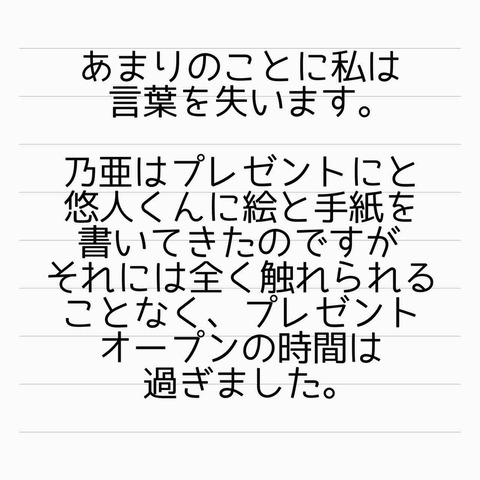 あまりのことに私は
言葉を失います。
乃亜はプレゼントにと
悠人くんに絵と手紙を
書いてきたのですが
それには全く触れられる
ことなく、プレゼント
オープンの時間は
過ぎました。